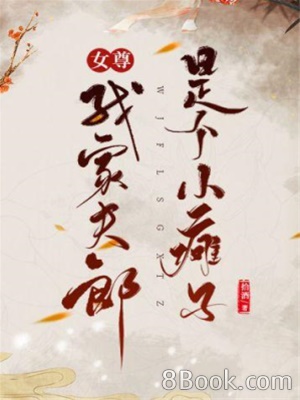 女尊
我家夫郎
W J F L S G X T Z
是个小瘫子
著
8Book.com